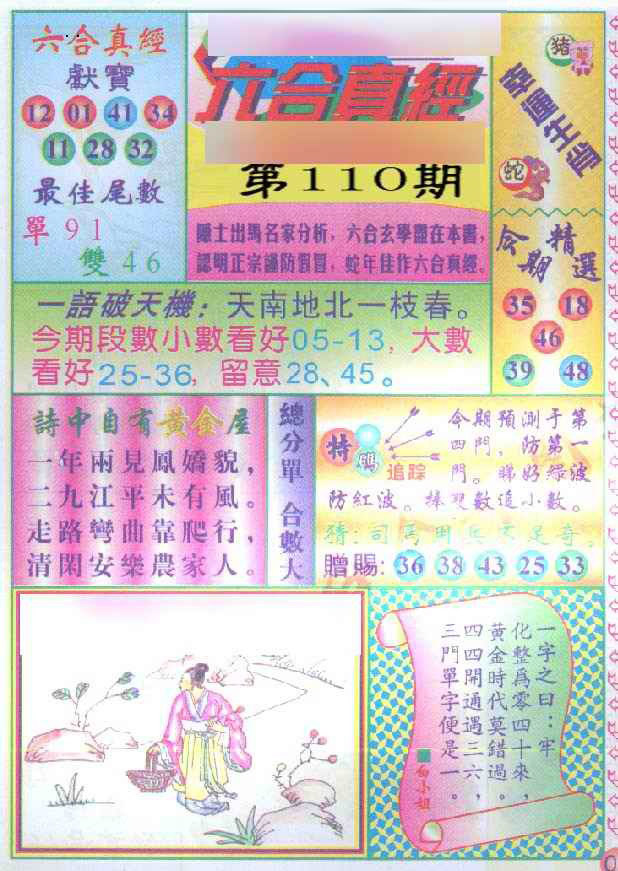 六合真經
獻寶
12 01 41 34
11 28 32
最佳尾數
單 91
雙 46
六合真經
第110期
隱士出馬名家分析，六合玄學盡在本書，
認明正宗謹防假冒，蛇年佳作六合真經。
豬
蛇
今期精選
35 18
46
39 48
一語破天機：天南地北一枝春。
今期段數小數看好05-13，大數
看好25-36，留意28、45。
詩中自有黃金屋
一年兩見鳳嬌貌，
二九江平未有風。
走路彎曲靠爬行，
清閑安樂農家人。
總分單 合數大
特碼
追踪
今期預測于第
四門，防第一
門。睇好綠波
防紅波。捧雙數追小數。
贈賜：36 38 43 25 33
一字之曰：牢
化整為零四十來，
黃金時代莫錯過。
四四開通遇三六，
三門單字便是一。
白小姐